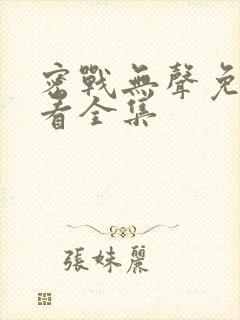 密戰無聲免
看全集
張妹麗